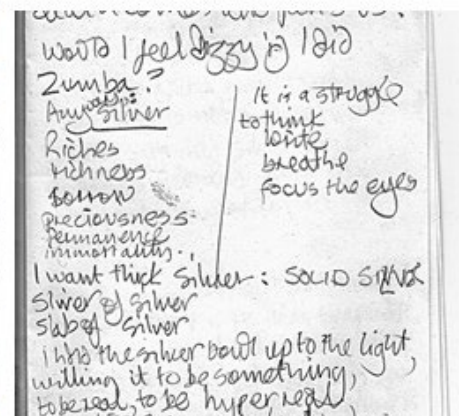 would I feel dizzy if I did
Zumba?
Anyways: silver
Riches
richness
borrow
preciousness
permanence
immortality..
It is a struggle
to think
write
breathe
focus the eyes
I want thick silver: SOLID SILVER
sliver of silver
slab of silver
i hold the silver bowl up to the light,
willing it to be something,
to be real, to be hyper real,